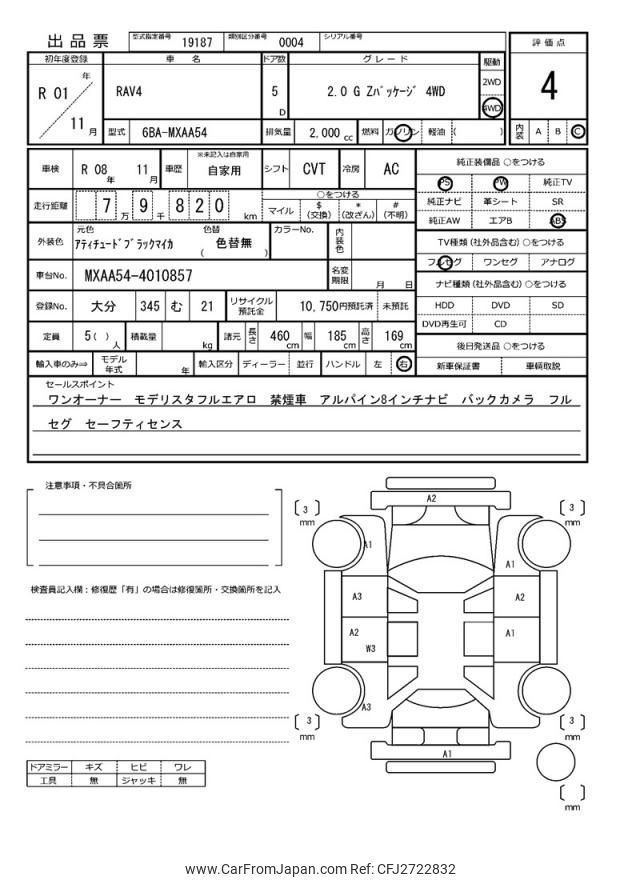 出品票 型式指定番号 19187 類別区分番号 0004 シリアル番号
評価点
初年度登録 車名 ドア数 グレード 駆動
R 01 年 RAV4 5 D 2.0 G Zパッケージ 4WD 2WD 4WD 4
11 月 型式 6BA-MXAA54 排気量 2,000 cc 燃料 ガソリン 軽油 ( ) 内装 A B C
車検 R 08 年 11 月 車歴 ※未記入は自家用 自家用 シフト CVT 冷房 AC 純正装備品 ○をつける
PS PW 純正TV
走行距離 7 万 9 千 8 2 0 km ○をつける 純正ナビ 革シート SR
マイル $ (交換) * (改ざん) # (不明) 純正AW エアB ABS
外装色 元色 アティチュードブラックマイカ 色替 ( 色替無 ) カラーNo. 内装色 TV種類 (社外品含む) ○をつける
フルセグ ワンセグ アナログ
車台No. MXAA54-4010857 名変期限 月 日 ナビ種類 (社外品含む) ○をつける
登録No. 大分 345 む 21 リサイクル預託金 10,750円預託済 未預託 HDD DVD SD
DVD再生可 CD
定員 5( ) 人 積載量 kg 諸元 長さ 460 cm 幅 185 cm 高さ 169 cm 後日発送品 ○をつける
輸入車のみ⇒ モデル年式 年 輸入区分 ディーラー 並行 ハンドル 左 右 新車保証書 車輌取説
セールスポイント
ワンオーナー モデリスタフルエアロ 禁煙車 アルパイン8インチナビ バックカメラ フル
セグ セーフティセンス
注意事項・不具合箇所
A2
3 mm
3 mm
A1
A1
検査員記入欄:修復歴「有」の場合は修復箇所・交換箇所を記入
A3
A2
A2
A1
W3
A3
3 mm
3 mm
A1
ドアミラー キズ ヒビ ワレ
工具 無 ジャッキ 無
mm
www.CarFromJapan.com Ref: CFJ2722832